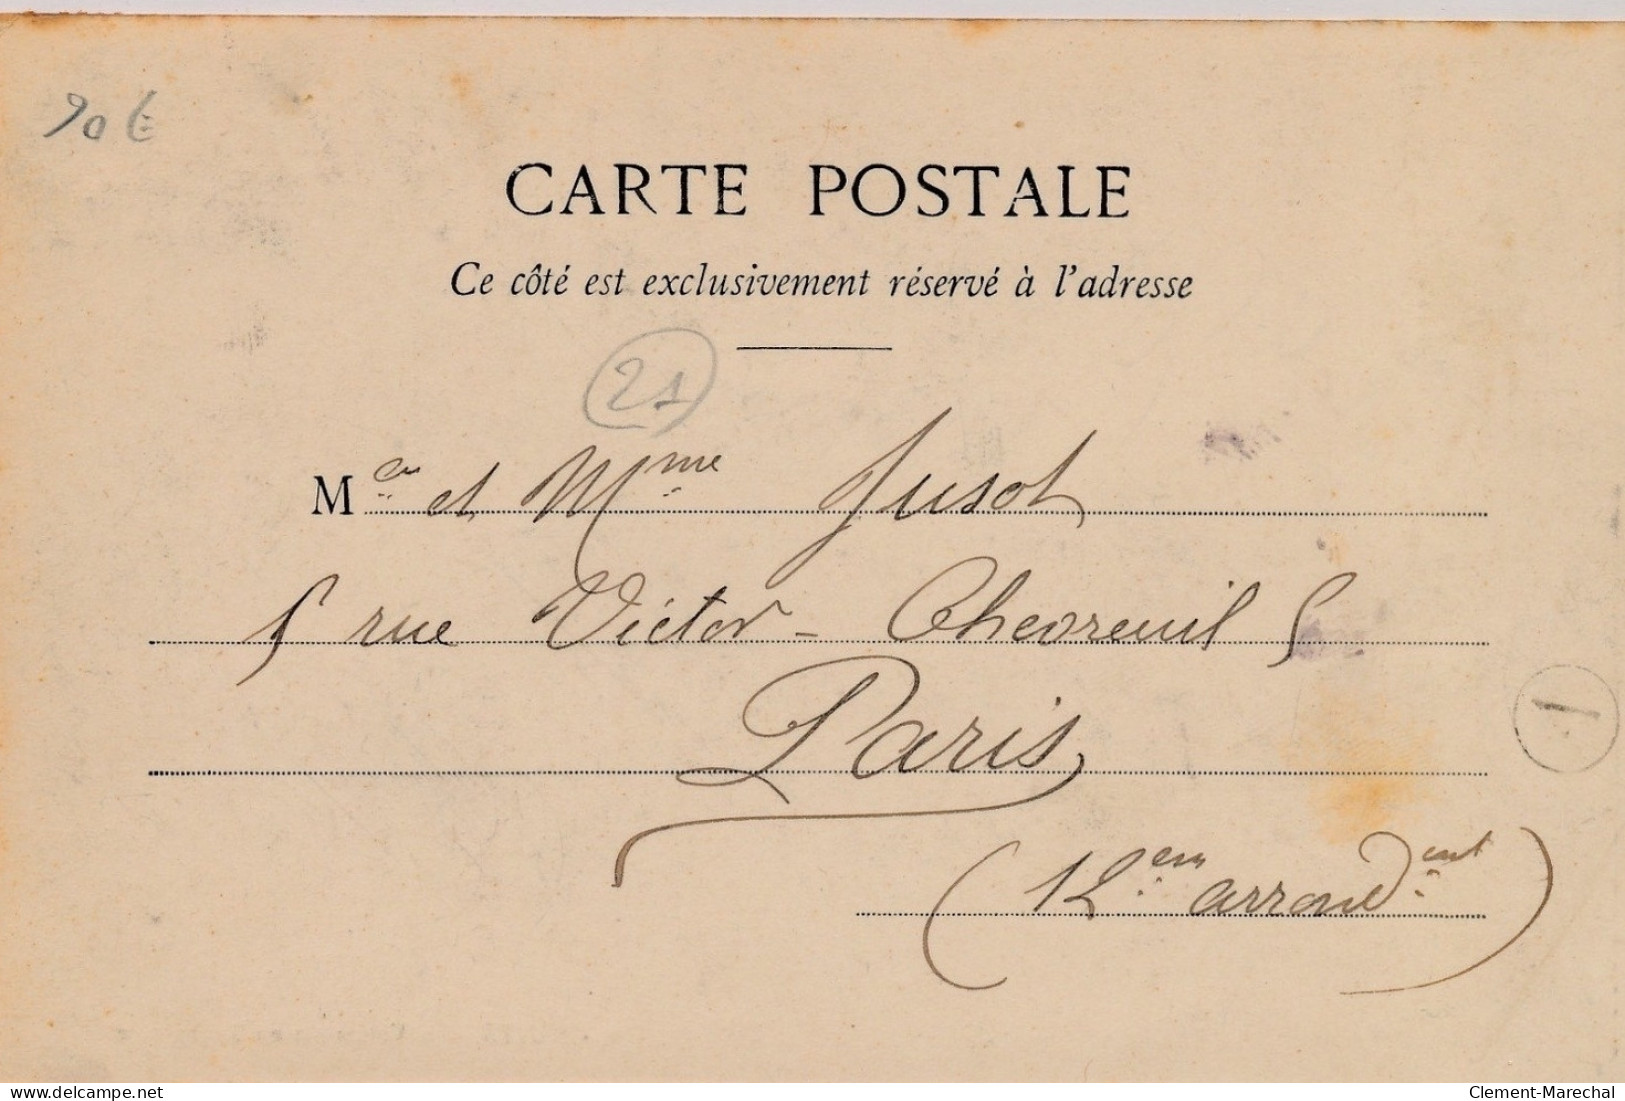 90 €
CARTE POSTALE
Ce côté est exclusivement réservé à l'adresse
21
Mr et Mme Jusot
5 rue Victor-Chevreuil 5
Paris
(12em arrondent)
1
delcampe.net
Clement-Marechal